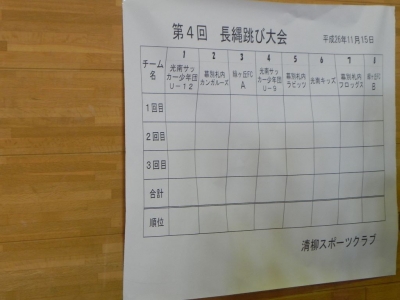 第4回 長縄跳び大会 平成26年11月15日
チーム名 1 2 3 4 5 6 7 8
光南サッカー少年団U-12 幕別札内カンガルーズ 緑ヶ丘FC A 光南サッカー少年団U-9 幕別札内ラビッツ 光南キッズ 幕別札内フロッグス 緑ヶ丘FC B
1回目
2回目
3回目
合計
順位
清柳スポーツクラブ